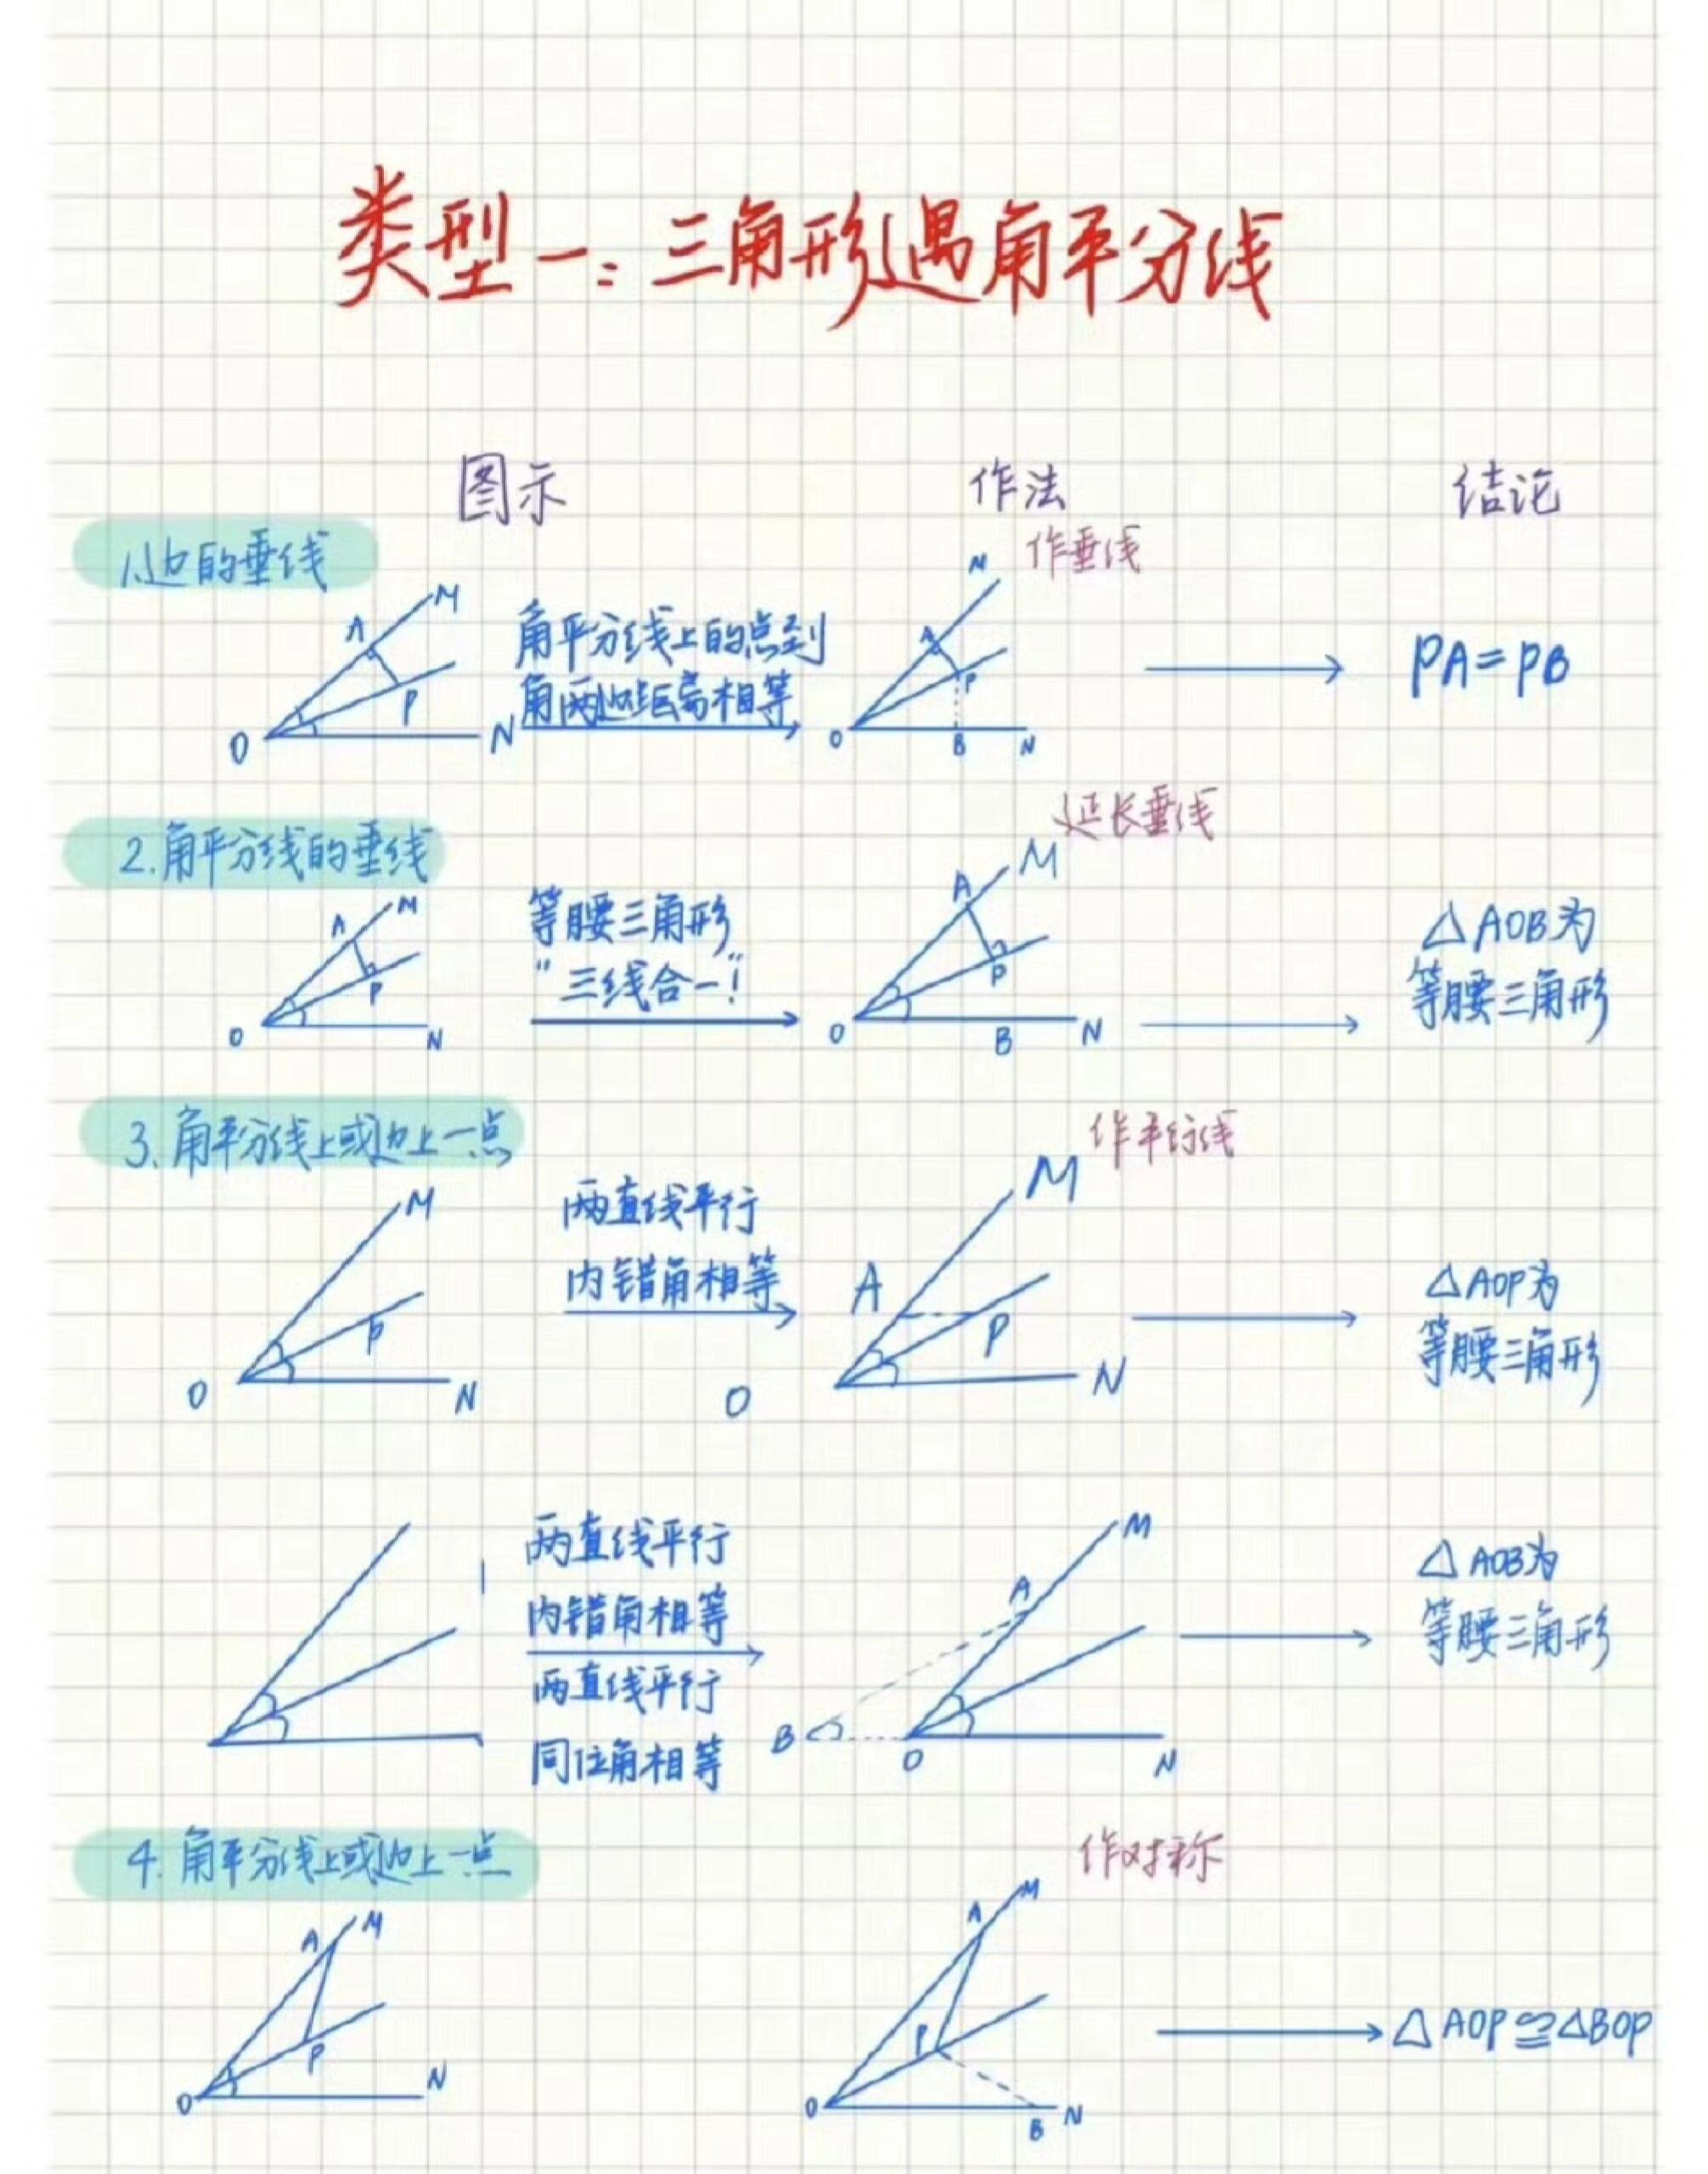 类型一:三角形遇角平分线
图示 作法 结论
1.边的垂线
作垂线
M
A
P
O
N
角平分线上的点到
角两边距离相等
M
A
P
O
B
N
PA=PB
2.角平分线的垂线
延长垂线
M
A
P
O
N
等腰三角形
"三线合一!"
M
A
P
O
B
N
△AOB为
等腰三角形
3.角平分线上或边上一点
作平行线
M
P
O
N
两直线平行
内错角相等
M
A
P
O
N
△AOP为
等腰三角形
两直线平行
内错角相等
两直线平行
同位角相等
M
A
B
O
N
△AOB为
等腰三角形
4.角平分线上或边上一点
作对称
M
A
P
O
N
M
A
P
O
B
N
△AOP≌△BOP